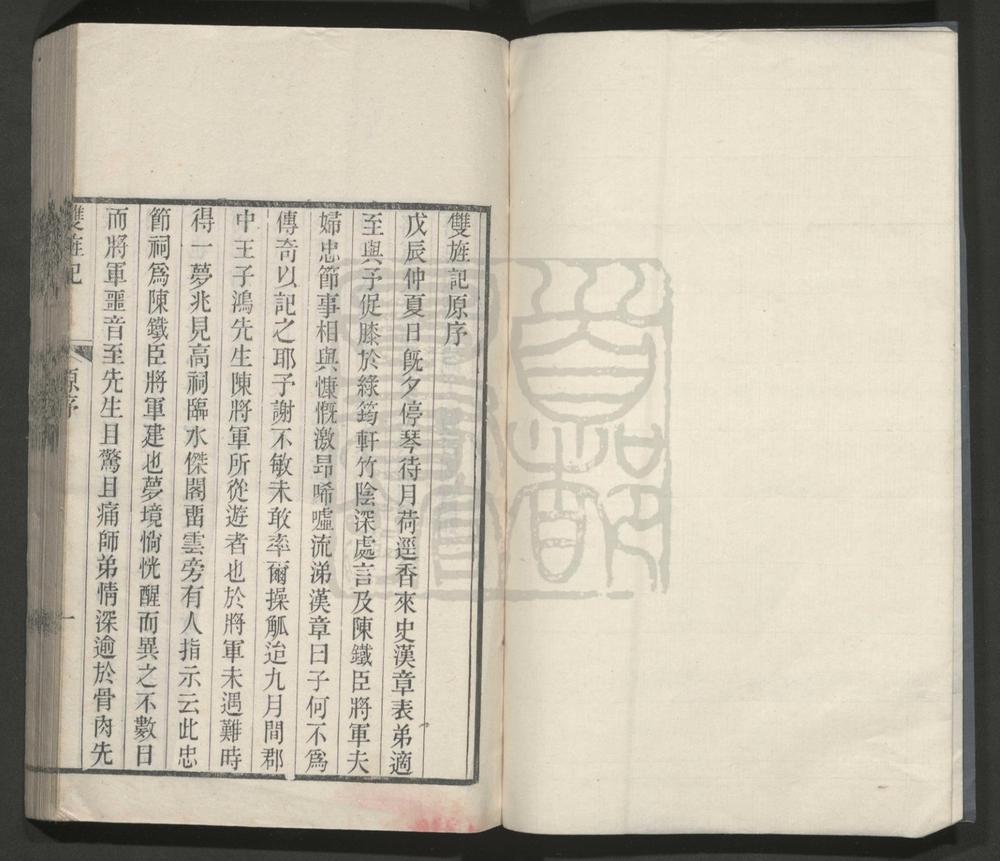 雙旌記原序
戊辰仲夏日既夕停琴待月荷逕香來史漢章表弟適
至與予促膝於綠筠軒竹陰深處言及陳鐵臣將軍夫
婦忠節事相與慷慨激昻唏噓流涕漢章曰子何不爲
傳奇以記之耶予謝不敏未敢率爾操觚迨九月間郡
中王子鴻先生陳將軍所從遊者也於將軍未遇難時
得一夢兆見高祠臨水傑閣畱雲旁有人指示云此忠
節祠爲陳鐵臣將軍建也夢境惝恍醒而異之不數日
而將軍噩音至先生且驚且痛師弟情深逾於骨肉先
雙旌記
原序
一